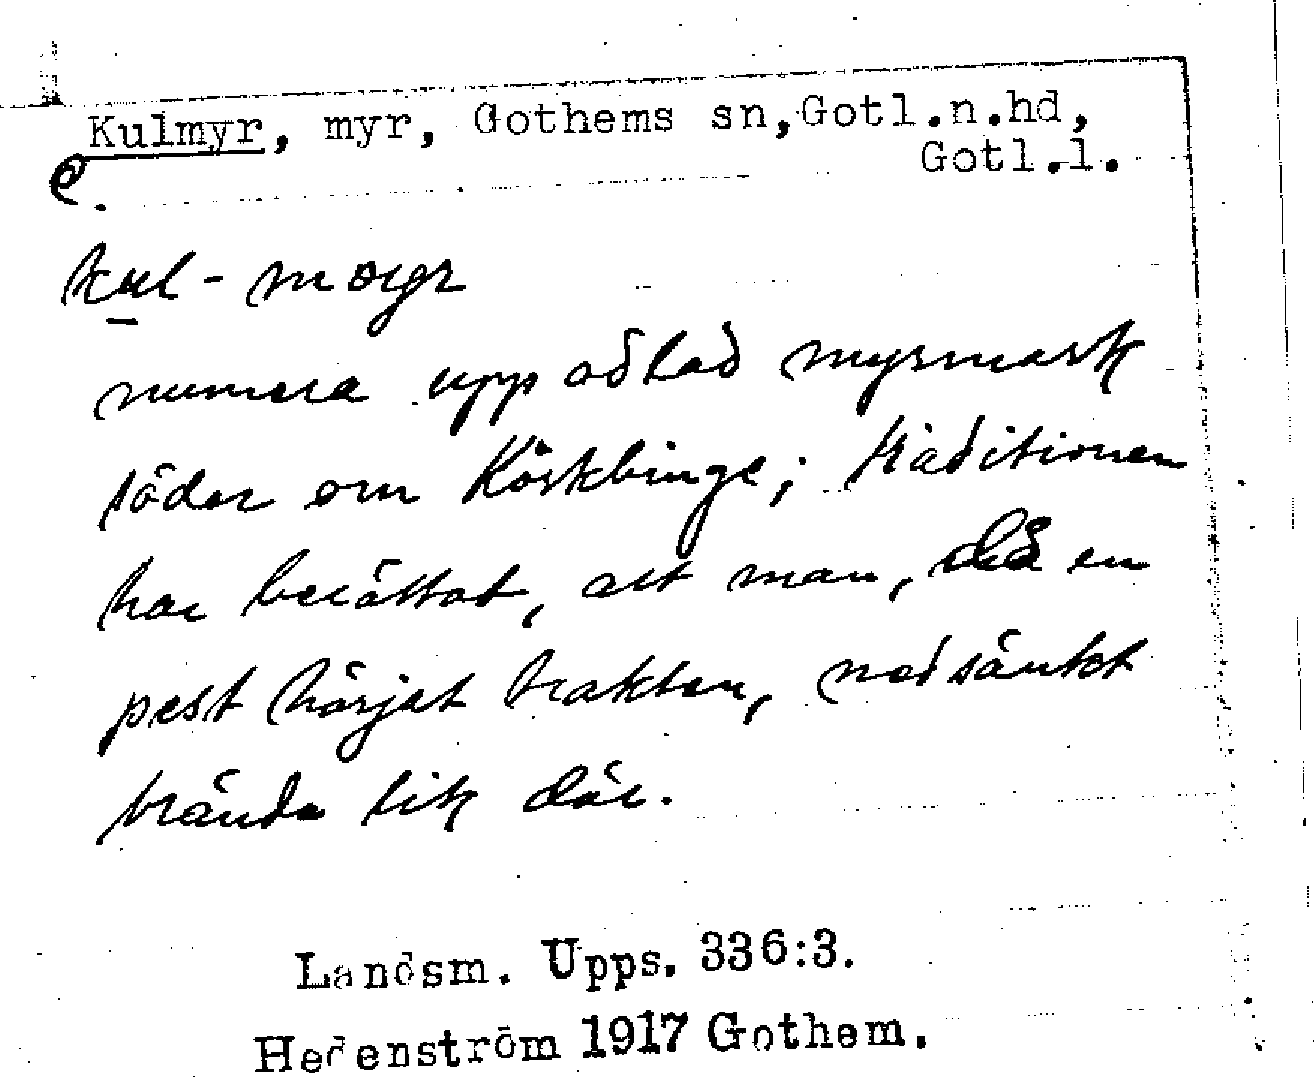 Kulmyr, myr, Gothems sn, Gotl.n.hd,
Gotl.l.
kul-moyr
numera uppodlad myrmark
söder om Körkbinge; traditionen
har berättat, att man, då en
pest härjat trakten, nedsänkt
brända lik där.
Landsm. Upps. 336:3.
Hedenström 1917 Gothem.